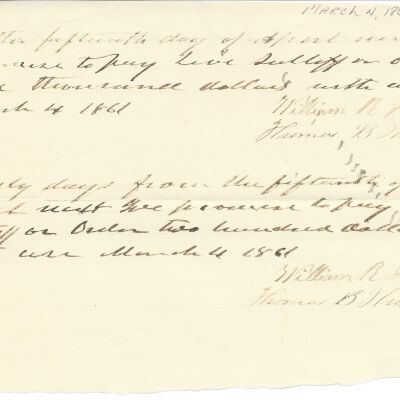 MARCH 4, 186
the fifteenth day of April next
to pay Levi Sutliff or o
thousand dollars with u
ch 4 1861
William R
Thomas B
ty days from the fifteenth of
next We promise to pay
ff or Order two hundred dolla
use March 4 1861
William R
Thomas B